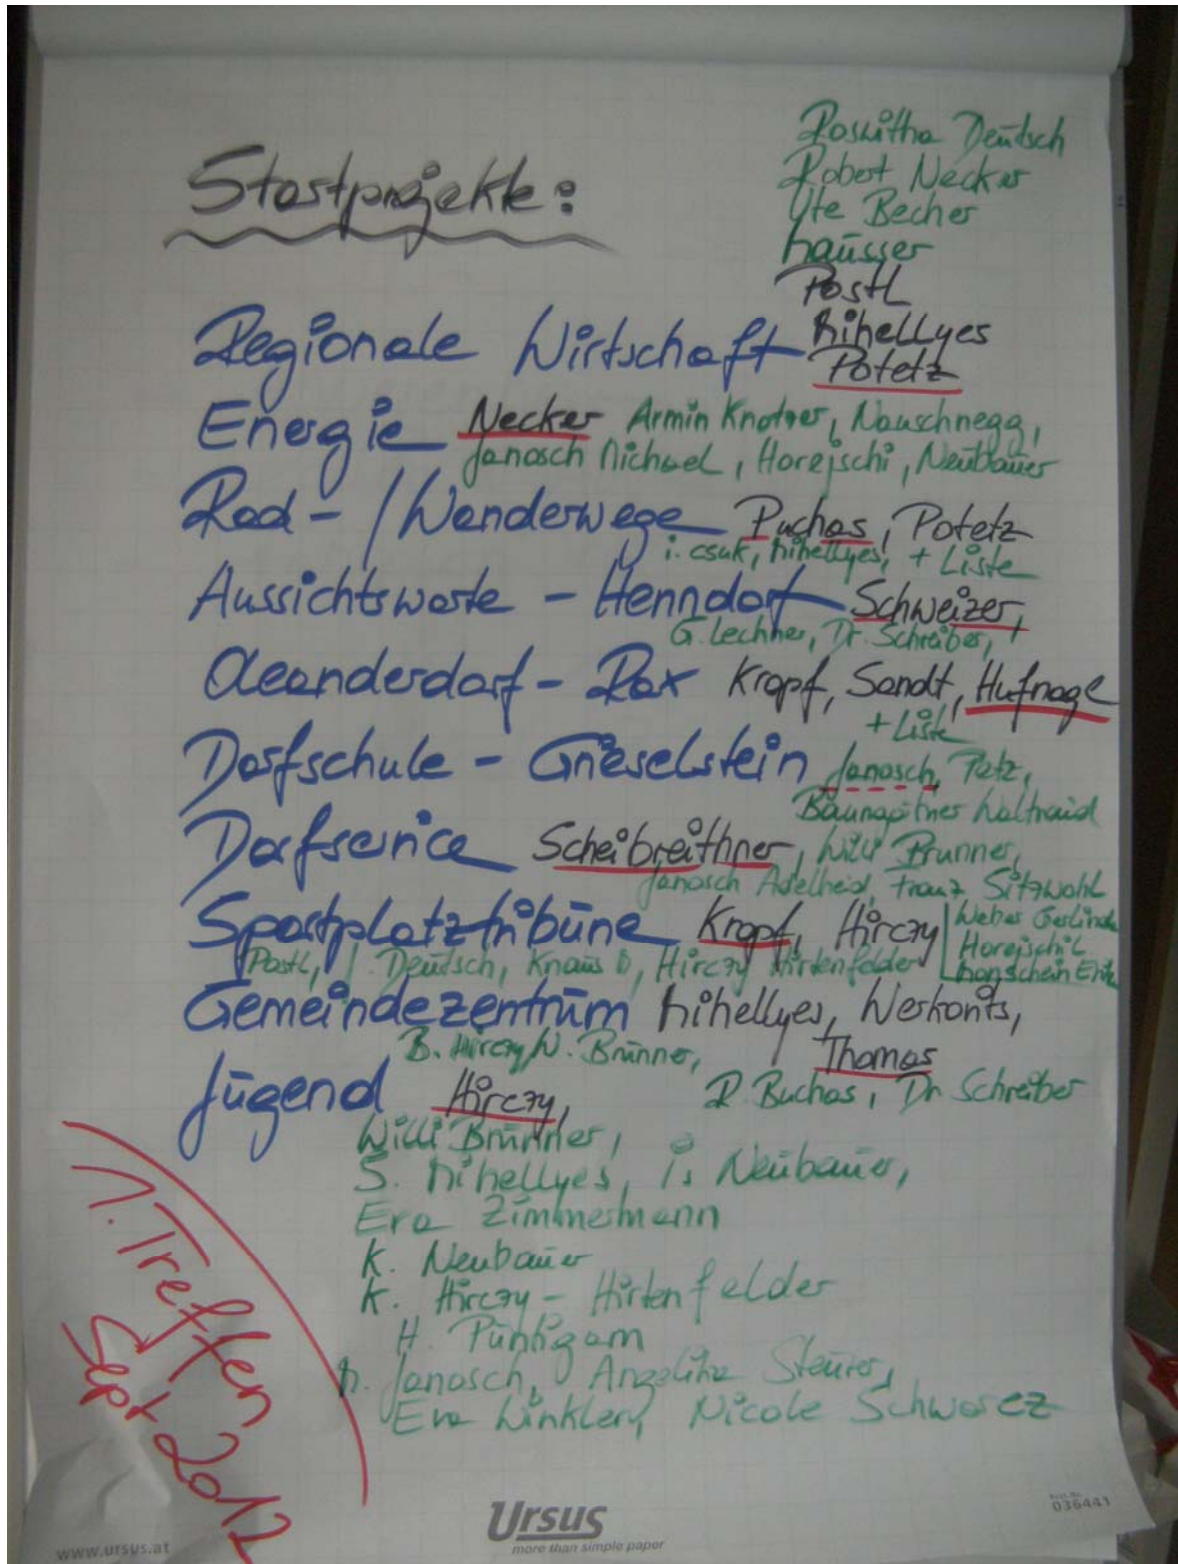 Roswitha Deutsch
Robert Necker
Ute Becher
Häusser
Startprojekte:
Postl
Mihellyes
Regionale Wirtschaft Potetz
Energie Necker Armin Knotzer, Nauschnegg,
Janosch Michael, Horejschi, Neubauer
Rad- / Wanderwege Puchas, Potetz
i. csuk, Mihellyes, + Liste
Aussichtswarte - Henndorf Schweizer,
G. Lechner, Dr. Schreiber, +
Oleanderdorf - Rax Kropf, Sandt, Hufnagl
+ Liste
Dorfschule - Grieselstein Janosch, Patz,
Baumgartner Waltraud
Dorfservice Scheibreithner, Willi Brunner,
Janosch Adelheid, Franz Sitzwohl
Sportplatztribüne Kropf, Hirczy
Weber Gerlinde
Horejschi L
Monschein Erika
Postl, J. Deutsch, Knaus D, Hirczy Hirtenfelder
Gemeindezentrum Mihellyes, Werkovits,
B. Hirczy, W. Brunner, Thomas
Jugend Hirczy, R. Buchas, Dr Schreiber
Willi Brunner,
S. Mihellyes, is Neubauer,
Eva Zimmermann
K. Neubauer
K. Hirczy - Hirtenfelder
H. Puntigam
M. Janosch, Angelika Steurer,
Eva Winkler, Nicole Schwarcz
1. Treffen
Sept 2012
www.ursus.at
Ursus
more than simple paper
036441